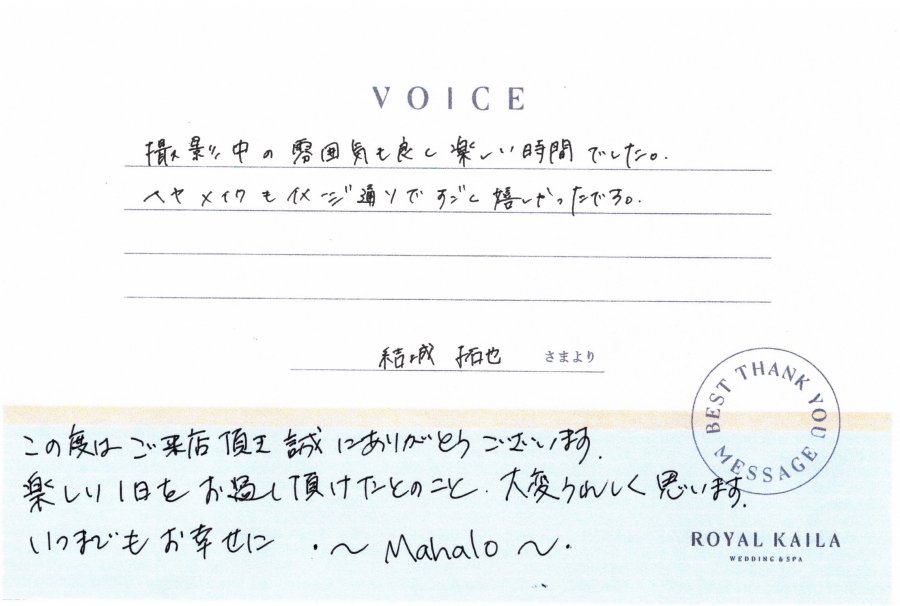 VOICE
撮影中の雰囲気も良く楽しい時間でした。
ヘヤメイクもイメージ通りですごく嬉しかったです。
結城 拓也 さまより
BEST THANK YOU MESSAGE
この度はご来店頂き誠にありがとうございます.
楽しい1日をお過し頂けたとのこと、大変うれしく思います.
いつまでもお幸せに ・〜 Mahalo 〜・
ROYAL KAILA
WEDDING & SPA